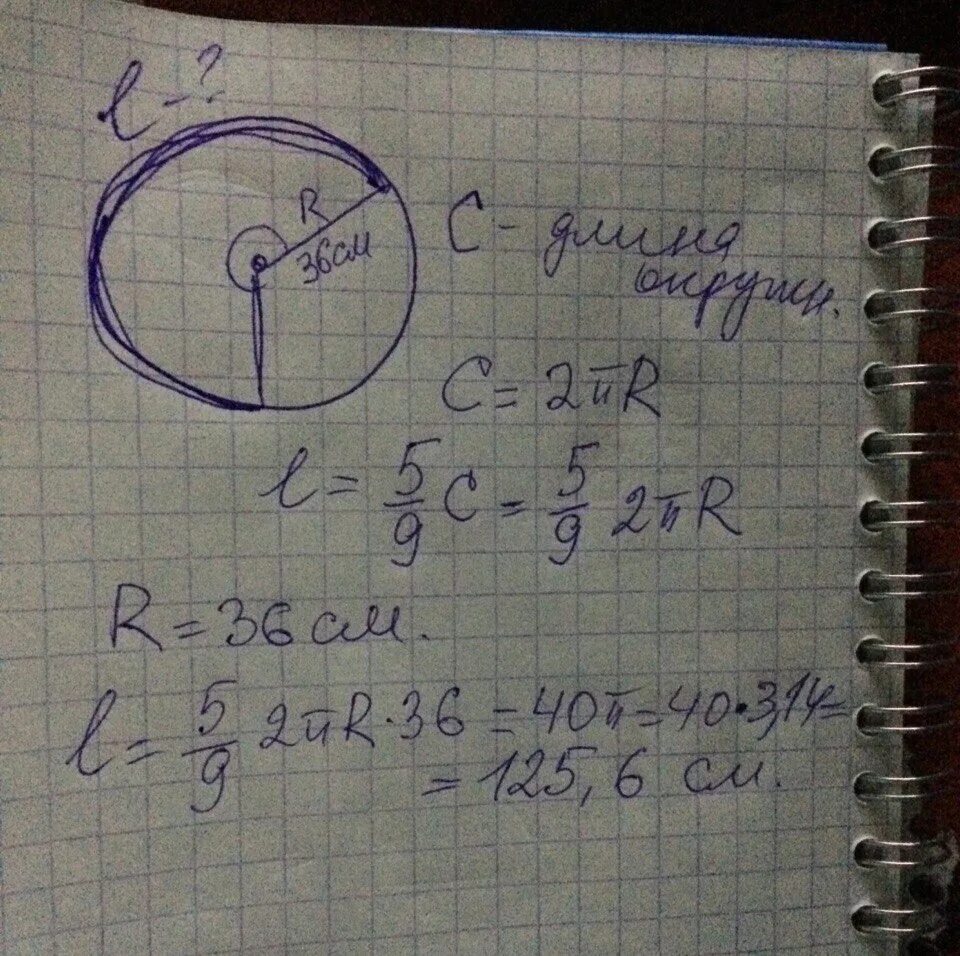 l - ?
R
36 см
C - длина
окружн.
C = 2πR
l = 5/9 C = 5/9 2πR
R = 36 см.
l = 5/9 2πR · 36 = 40π = 40 · 3,14 =
= 125,6 см.